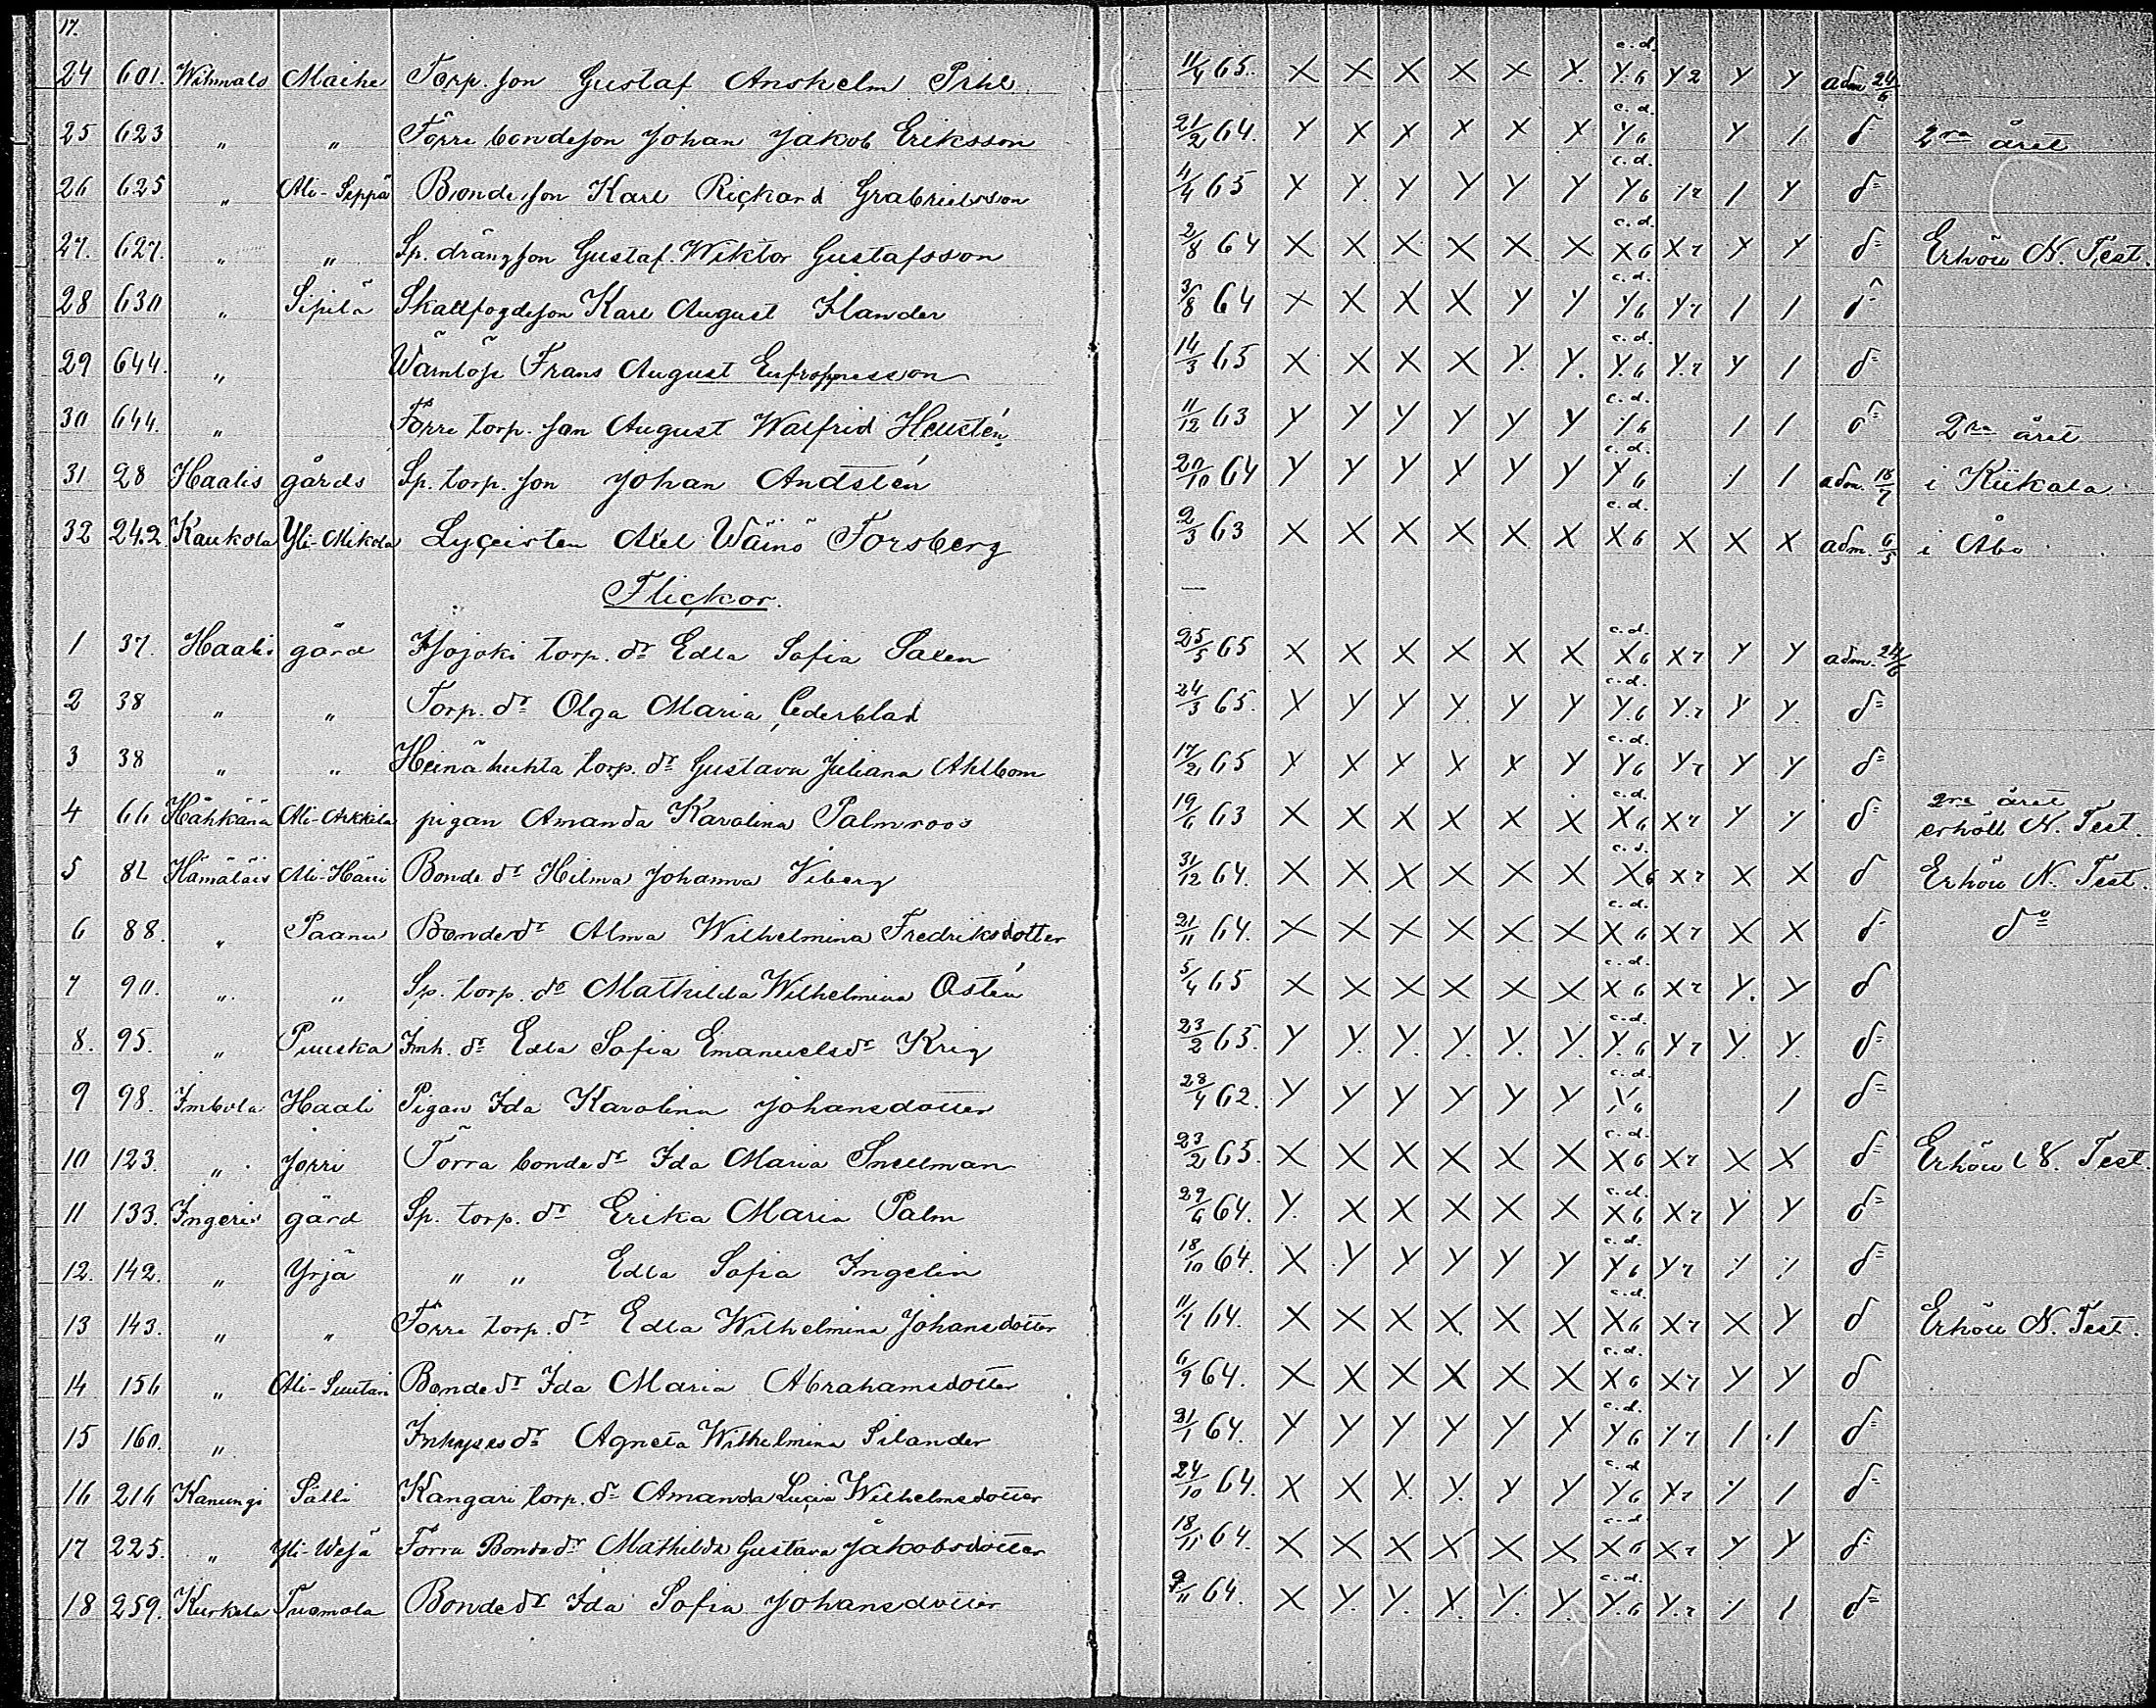 17.
24 601. Wihmalo Maihe Torp. son Gustaf Anshelm Prihl 11/4 65. X X X X X X. c.d. Y.6 Y2 Y Y adm 24/6
25 623 " " Förre bondeson Johan Jakob Eriksson 21/2 64. Y X X X X X c.d. Y6 Y / do 2ra året
26 625 " Ali-Seppä Bondeson Karl Rickard Gabrielsson 11/4 65 Y Y. Y. Y Y Y c.d. Y6 Y7 / Y do
27. 627. " " Sp. drängson Gustaf Wiktor Gustafsson 2/8 64 X X X X X X c.d. X6 X7 Y Y do Erhöll N. Test.
28 630 " Sipilä Skallfogdeson Karl August Ilander 3/8 64 X X X X Y Y c.d. Y6 Y7 / / do
29 644. " Wärnlöse Frans August 14/3 65 X X X X Y. Y. c.d. Y.6 Y.7 Y / do
30 644. " Förre torp. son August Walfrid Heustén 11/12 63 Y Y Y Y Y Y c.d. Y6 / / do 2ra året
31 28 Haalis gårds Sp. torp. son Johan Andstén 20/10 64 Y Y Y Y Y Y c.d. Y6 / / adm. 18/7 i Kiikala
32 242. Kaukola Yli-Mikola Lyceisten Axel Wäinö Forsberg 2/3 63 X X X X X X c.d. X6 X X X adm. 6/5 i Åbo
Flickor.
1 37. Haali gård Isojoki torp. dr Edla Sofia Salen 25/5 65 X X X X X X c.d. X6 X7 Y Y adm. 24/6
2 38 " " Torp. dr Olga Maria Cederblad 24/3 65. X Y Y Y Y Y c.d. Y.6 Y.7 Y Y. do
3 38 " " Heinähuhta torp. dr Gustava Juliana Ahlbom 17/2 65 Y Y X X X Y c.d. Y6 Y7 Y Y do
4 66 Hähkänä Ali-Arkkila pigan Amanda Karolina Palmroos 19/6 63 X X X X X X c.d. X6 X7 Y Y do 2ra året
erhöll N. Test.
5 82 Hämäläis Ali-Häiri Bonde dr Hilma Johanna Viberg 31/12 64. X X X X X X c.d. X6 X7 X X do Erhöll N. Test.
6 88. " Paanu Bonde dr Alma Wilhelmina Fredriksdotter 21/11 64. X X X X X X c.d. X6 X7 X X do do
7 90. " " Sp. torp. dr Mathilda Wilhelmina Ostén 5/4 65 X X X X X X c.d. X6 X7 Y. Y do
8. 95. " Puuska Inh. dr Edla Sofia Emanuelsdr Krig 23/2 65. Y Y. Y. Y. Y. Y. c.d. Y.6 Y7 Y. Y. do
9 98. Imbola Haali Pigan Ida Karolina Johansdotter 28/4 62. Y Y Y Y Y Y c.d. Y6 / do
10 123. " Jorri Förra bonde dr Ida Maria Snellman 23/2 65. X X X X X X c.d. X6 X7 X X do Erhöll N. Test.
11 133. Ingeris gård Sp. torp. dr Erika Maria Palm 29/6 64. Y. X X X X X c.d. X6 X7 Y Y do
12. 142. " Yrjä " " Edla Sofia Ingelin 18/10 64. X Y Y Y Y Y c.d. Y6 Y7 / / do
13 143. " " Förre torp. dr Edla Wilhelmina Johansdotter 11/1 64. X X X X X X c.d. X6 X7 X Y do Erhöll N. Test.
14 156 " Ali-Suutari Bonde dr Ida Maria Abrahamsdotter 6/9 64. X X X X X X c.d. X6 X7 Y Y do
15 160. " Inhysesdr Agneta Wilhelmina Silander 21/1 64. Y Y Y Y Y Y c.d. Y6 Y7 / / do
16 216 Kanungi Sälli Kangari torp. dr Amanda Lucia Wilhelmsdotter 24/10 64. X X X. Y. Y Y c.d. Y6 Y7 / / do
17 225. " Yli-Wesä Förra Bonde dr Mathilda Gustava Jakobsdotter 18/11 64. X X X X X X c.d. X6 X7 Y Y do
18 259. Kurkela Tuomola Bonde dr Ida Sofia Johansdotter 9/11 64. X Y. Y. X. Y. Y c.d. Y.6 Y.7 / / do